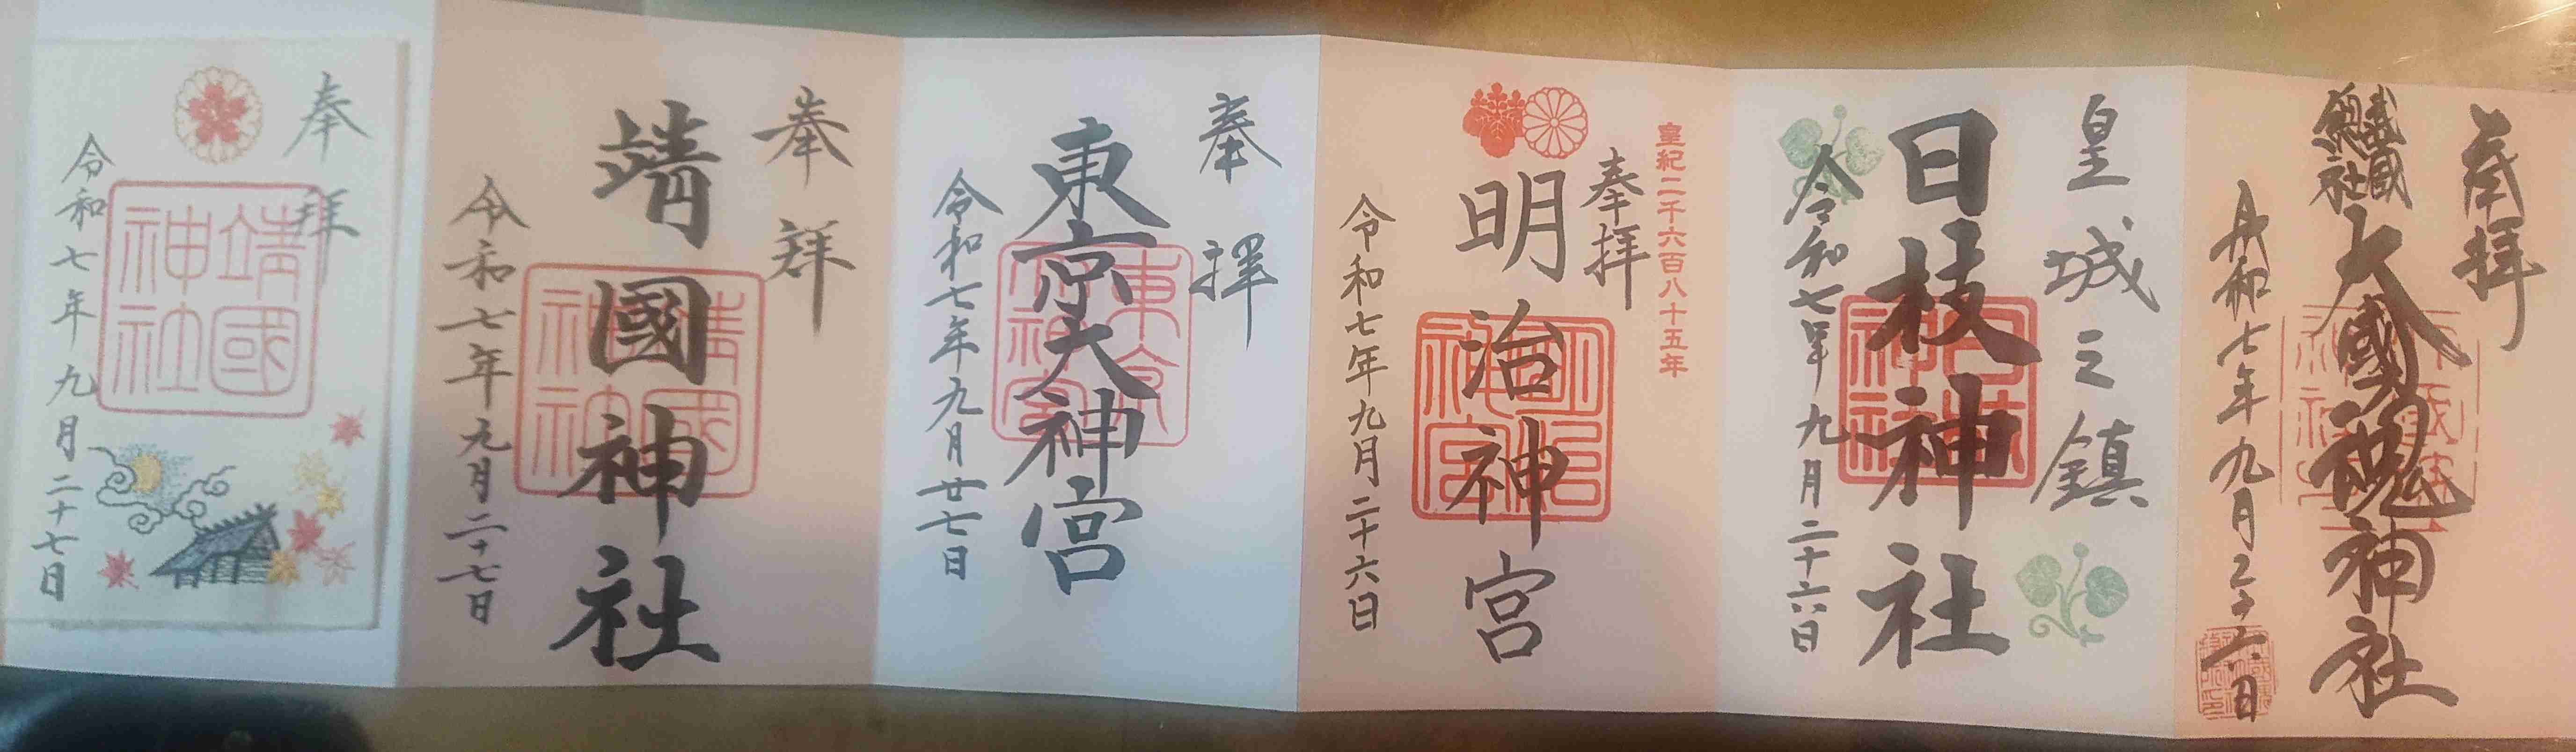 奉拝
武蔵総社
大國魂神社
令和七年九月二十六日
皇城之鎮
日枝神社
令和七年九月二十六日
皇紀二千六百八十五年
奉拝
明治神宮
令和七年九月二十六日
奉拝
東京大神宮
東京
神宮
令和七年九月廿七日
奉拝
靖國神社
靖國
神社
令和七年九月二十七日
奉拝
靖國
神社
令和七年九月二十七日